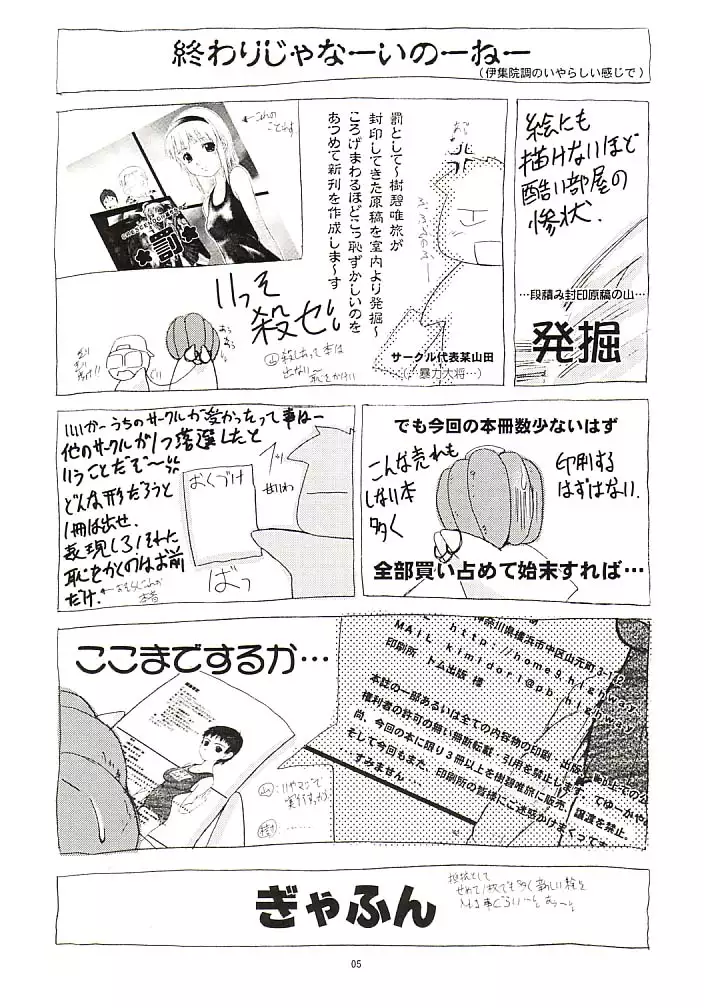 終わりじゃなーいのーねー
(伊集院調のいやらしい感じで)
絵にも
描けないほど
酷い部屋の
惨状.
…段積み封印原稿の山…
発掘
罰として〜樹碧唯旅が
封印してきた原稿を室内より発掘〜
ころげまわるほどこっ恥ずかしいのを
あつめて新刊を作成しま〜す
サークル代表某山田
(…暴力大将…)
←これの
ことらす
罰
いっそ
殺せ!
山 殺しあって本は
出ない〜
恥をかけ!!
でも今回の本冊数少ないはず
こんな売れも
しない本
多く
印刷する
はずはない.
全部買い占めて始末すれば…
いいかーうちのサークルが受かったって事はー
他のサークルが1つ落選したと
いうことだぞ〜
どんな形だろうと
1冊は出せ.
表現しろ!それに
恥をかくのはお前
だけ.
おくづけ
ばっ
ここまでするか…
神奈川県横浜市中区山元町3-1
http://home9.highway
MAIL kimidori@pb.highway
印刷所 トム出版 様
本誌の一部あるいは全ての内容物の印刷・出版
権利者の許可の無い無断転載、引用を禁止します。てゆーかや
尚、今回の本に限り3冊以上を樹碧唯旅に販売、譲渡を禁止。
そして今回もまた、印刷所の皆様にご迷惑かけまくって
すみません
樹:……
ぎゃふん
抵抗として
せめて1枚でも多く新しい絵を
05